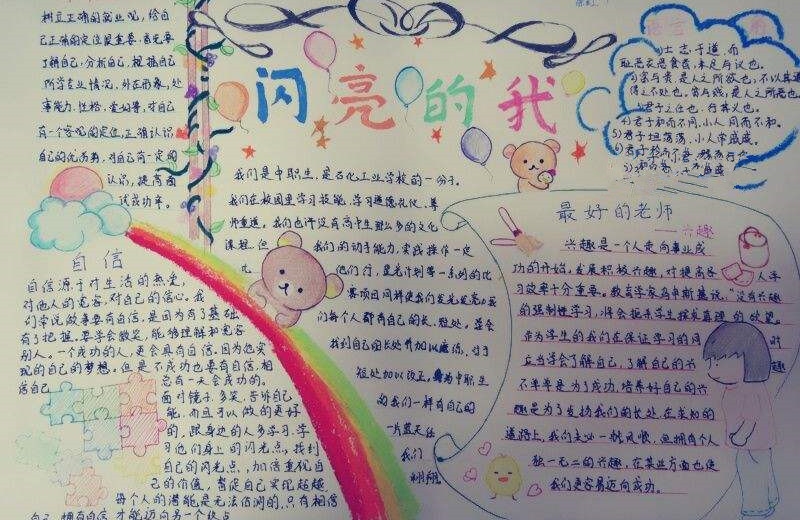 树立正确的就业观，给自
己正确的定位很重要，首先要
了解自己，分析自己，根据自己
所学专业情况，外在形象，处
事能力，性格，爱好等，对自己
有一个客观的定位，正确认识
自己的优劣势，对自己有一定的
认识，提高面
试成功率。
自信
自信源于对生活的热爱，
对他人的宽容，对自己的信心。我
们常说做事要有自信，是因为有了基础
有了把握，要学会微笑，能够理解和宽容
别人。一个成功的人，更会具有自信，因为他实
现的自己的梦想。但是不成功也要有自信，相
信自己
总有一天会成功的。
面对镜子，多笑，告诉自己
能，而且可以做的更好
的，跟身边的人多学习，学
习他们身上的闪光点，找到
自己的闪光点，加倍重视自
己的价值，督促自己实现超越
每个人的潜能是无法估测的，只有相信
自己，拥有自信，才能迈向另一个终点
闪亮的我
我们是中职生，是石化工业学校的一份子。
我们在校园里学习技能，学习道德礼仪，尊
师重道。我们也许没有高中生那么多的文化
课程，但
我们的动手能力，实践操作一定
比
他们行，星光计划等一系列的比
赛项目同样使我们发光发亮。我
们每个人都有自己的长、短处，学会
找到自己的长处并加以磨练，对于
短处加以改正，身为中职生
的我们一样有自己的
一片蓝天任
我们
翱翔
1)士志于道，而
耻恶衣恶食者，未足与议也。
2)富与贵，是人之所欲也，不以其道
得之不处也，贫与贱，是人之所恶也
3)君子之仕也，行其义也。
4)君子和而不同，小人同而不和。
5)君子坦荡荡，小人常戚戚。
最好的老师
——兴趣
兴趣是一个人走向事业成
功的开始，发展积极兴趣，对提高客
人学
习效率十分重要。教育学家乌申斯基说，“没有兴趣
的强制性学习，将会扼杀学生探求真理的欲望。
作为学生的我们在保证学习的同
时
应当学会了解自己，了解自己的兴
趣
不单单是为了成功，培养好自己的兴
趣是为了发扬我们的长处，在求知的
道路上，我们未必一帆风顺，但拥有个人
独一无二的兴趣，在某业方面也使
我们更容易迈向成功。